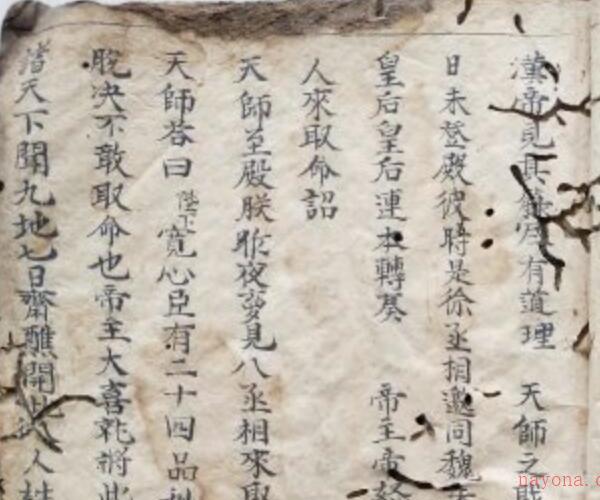 漢帝見其鐘有道理 天師之
日未登殿彼時是徐丞相邀同魏
皇后皇后連本轉奏 帝主帝
人來取命詔
天師至殿朕昨夜夢見八丞相來取
天師答曰陛下寬心臣有二十四品
脫决不敢取命也帝主大喜就將此
諸天下開九地七日齋醮開此人
nayona.c